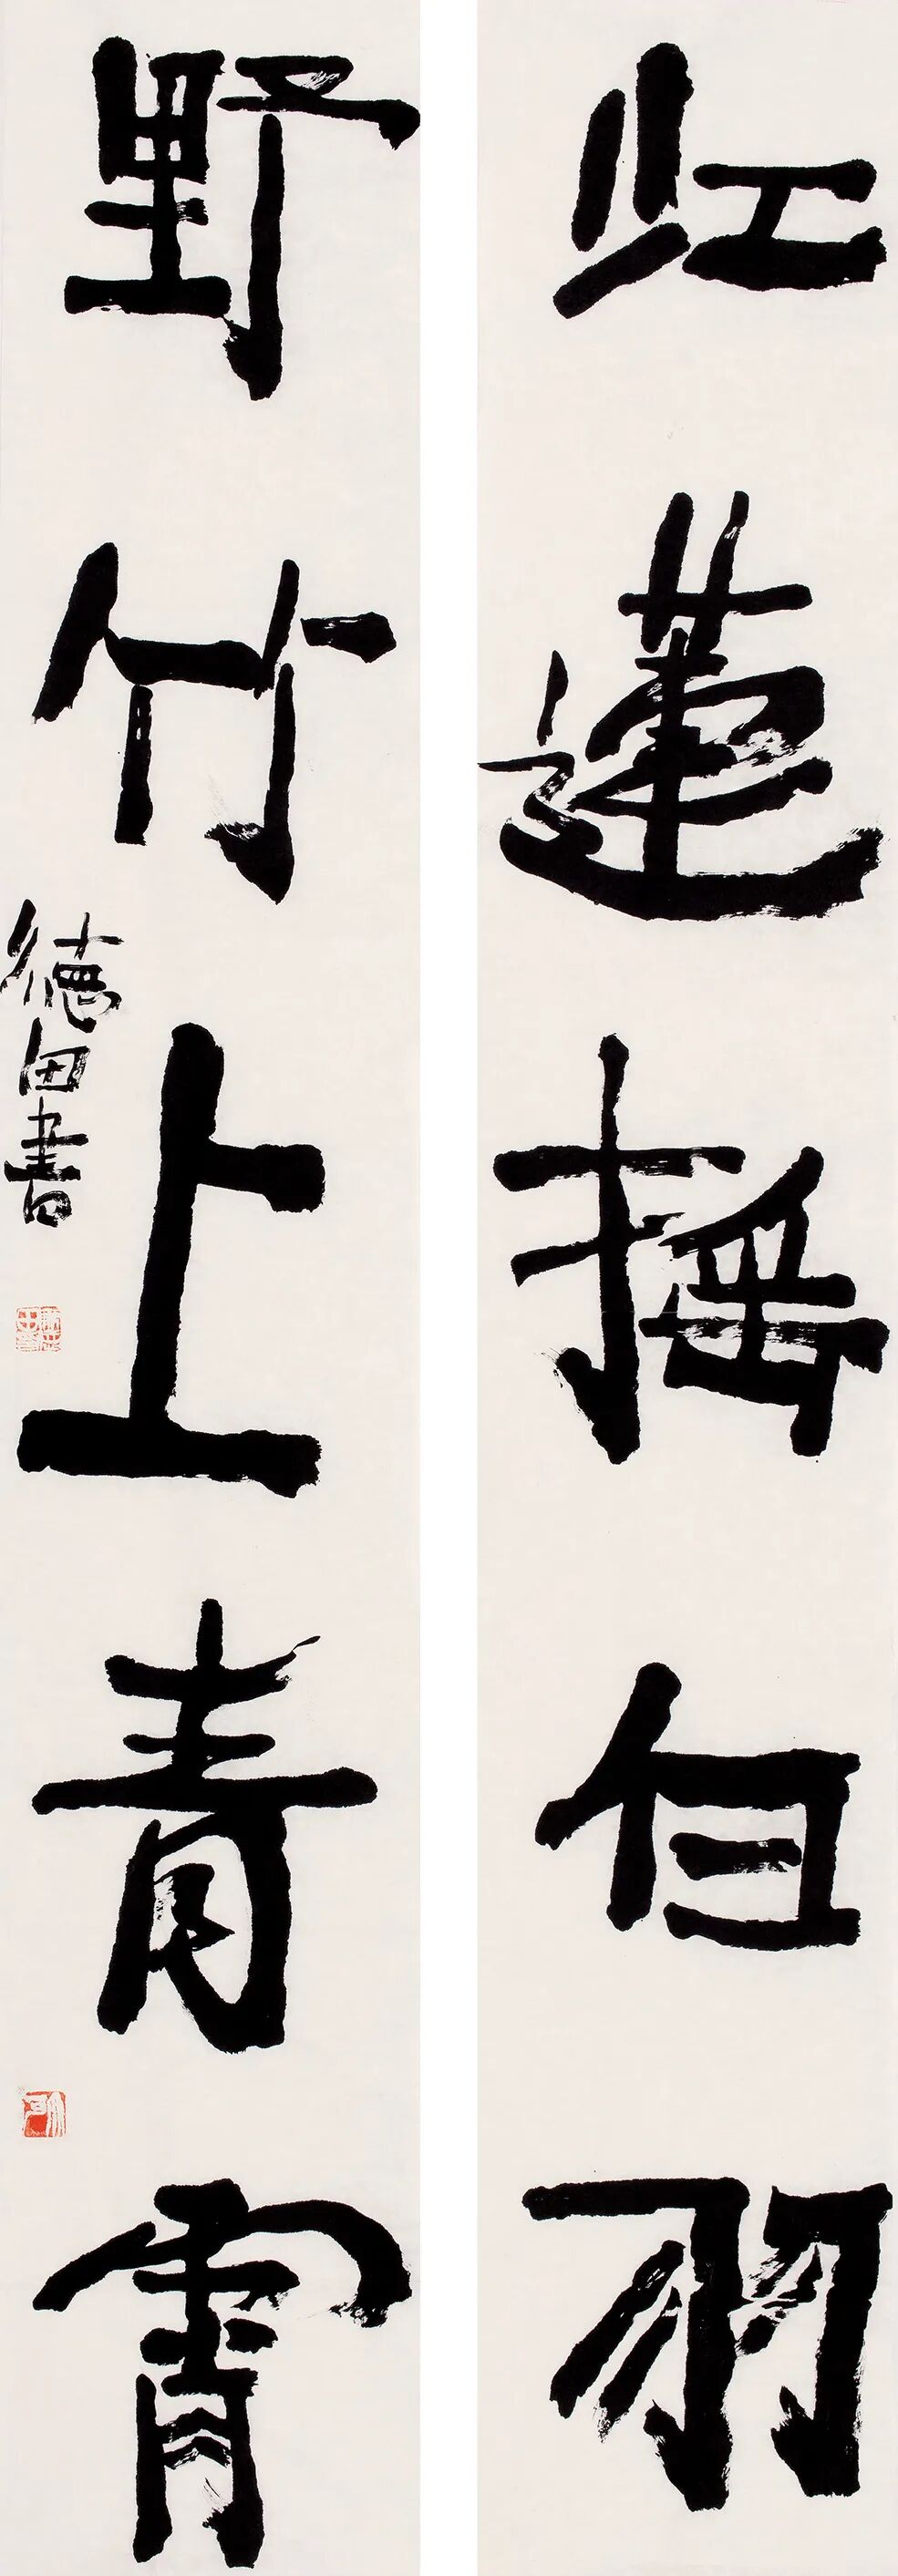 江蓮搖白羽
野竹上青霄
德田書